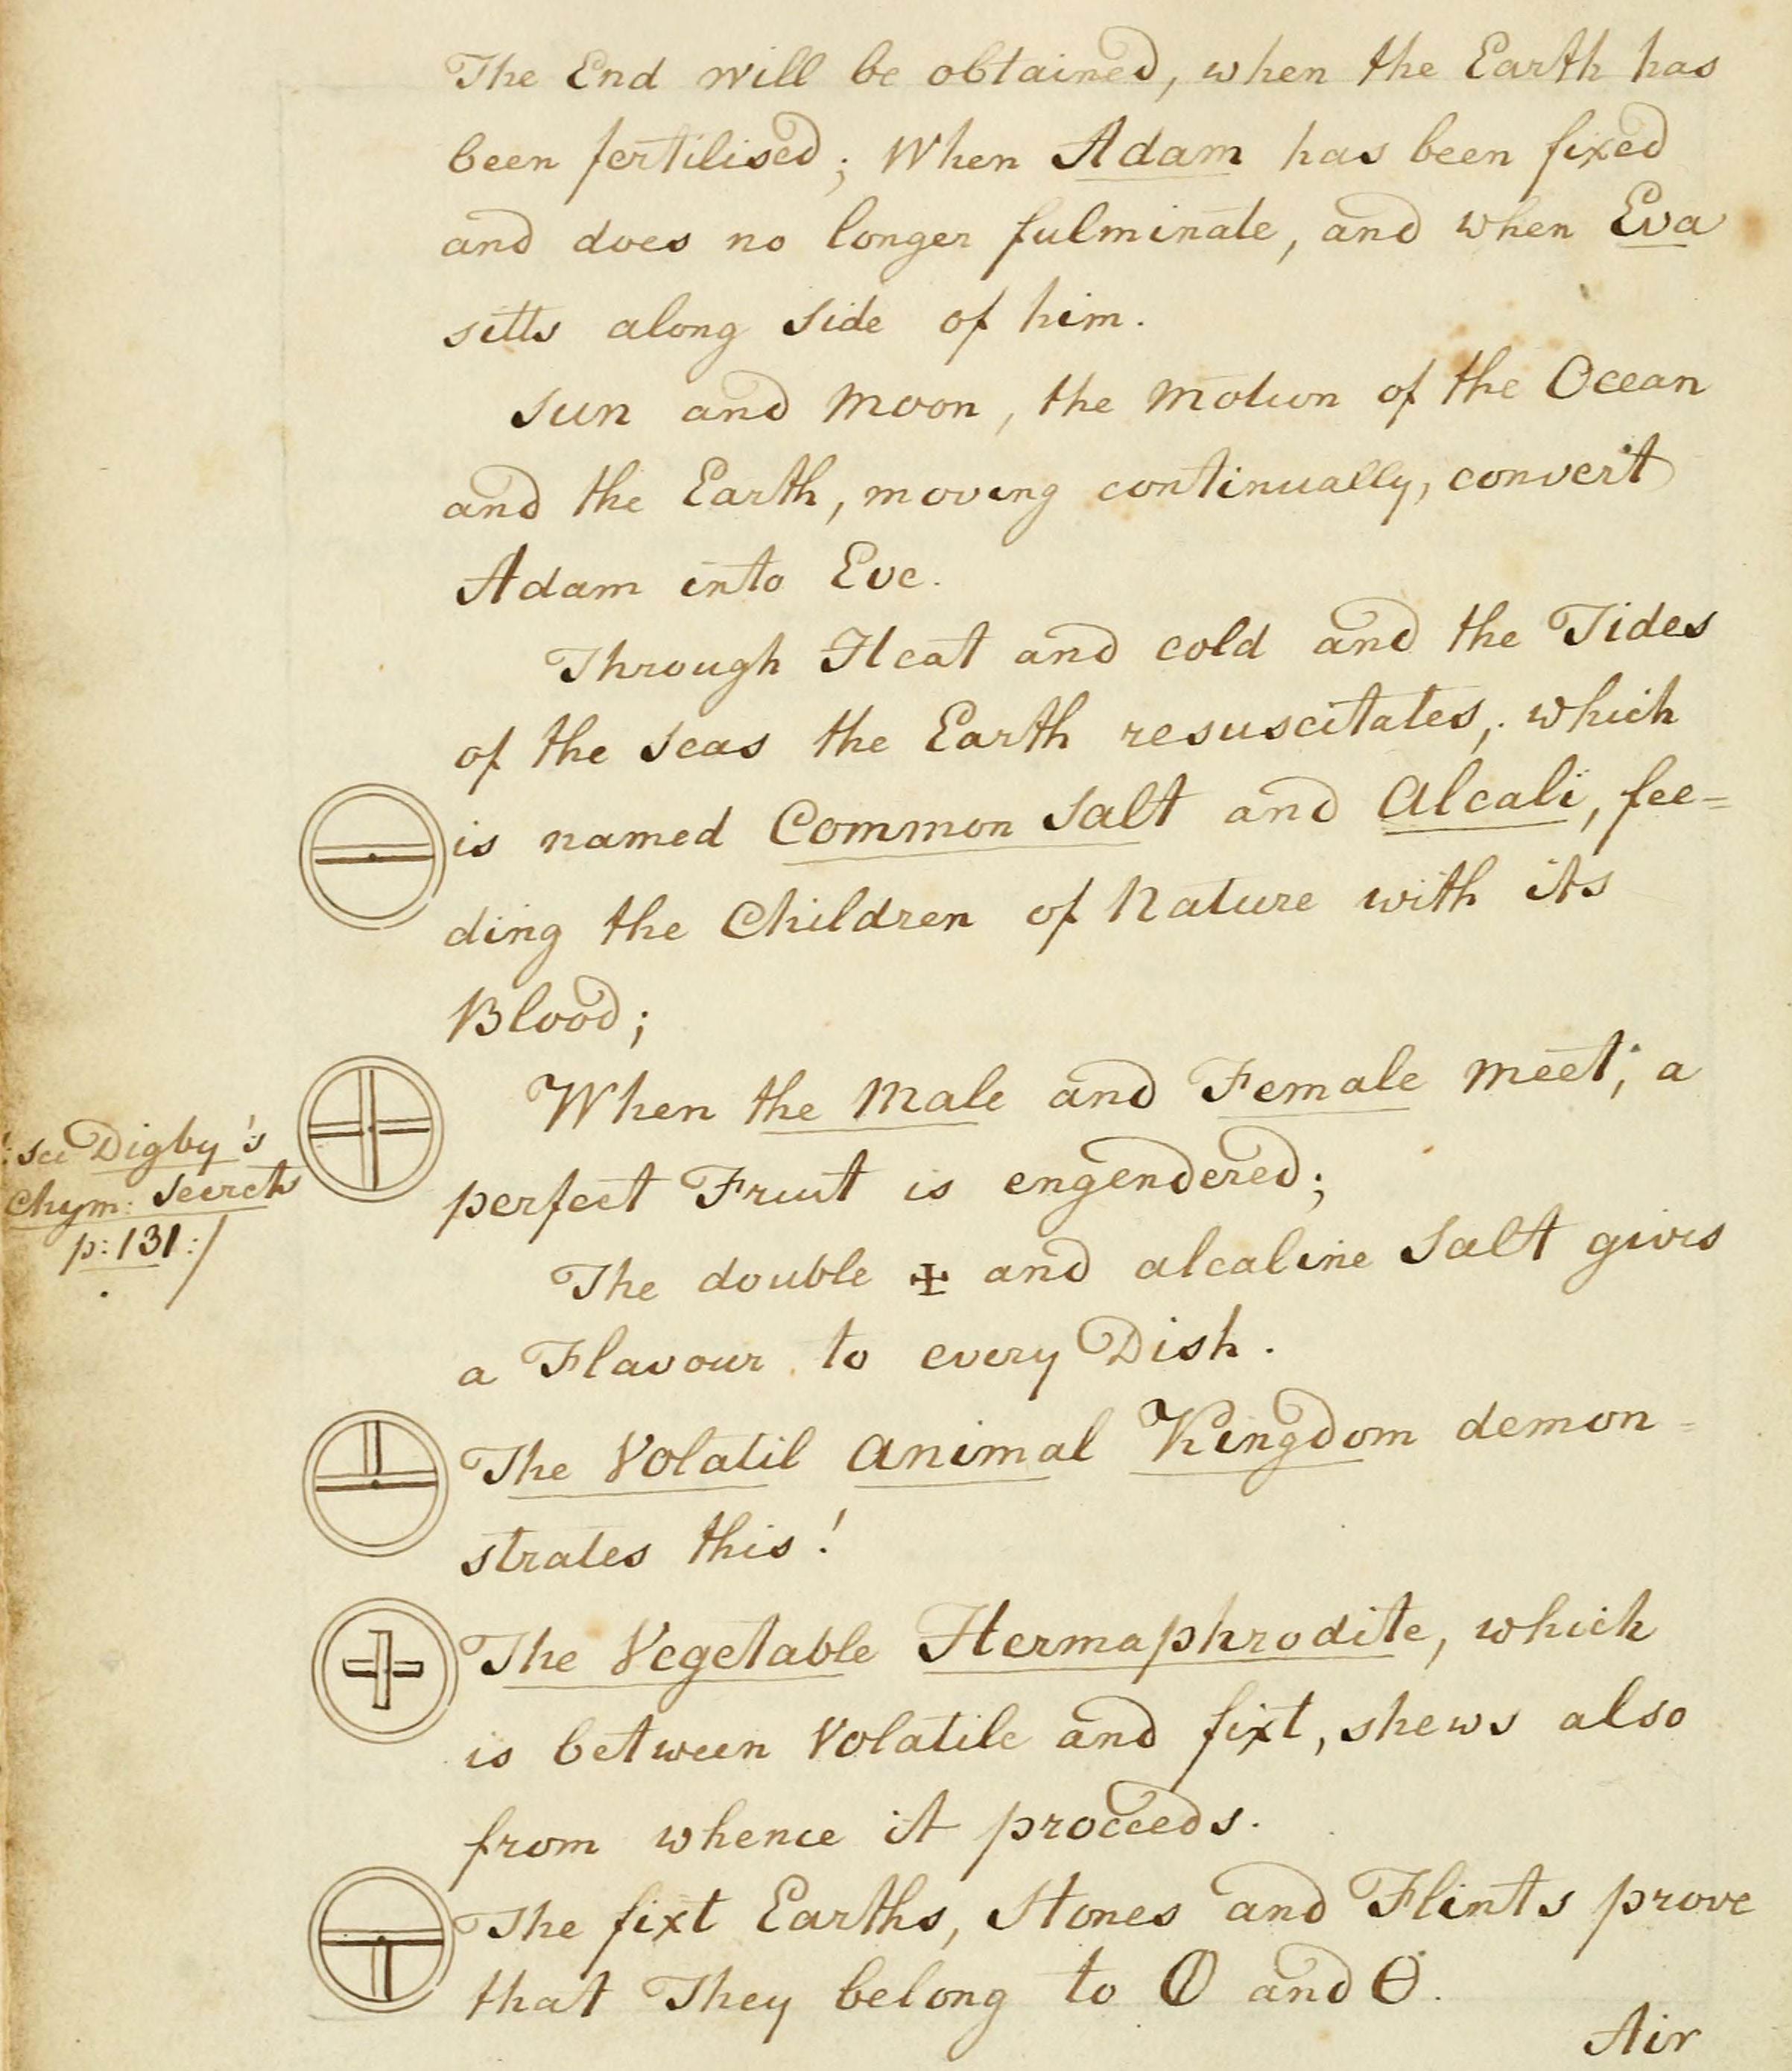 The End will be obtained, when the Earth has
been fertilised; When Adam has been fixed
and does no longer fulminate, and when Eva
sitts along side of him.
Sun and Moon, the Motion of the Ocean
and the Earth, moving continually, convert
Adam into Eve.
Through Heat and cold and the Tides
of the Seas the Earth resuscitates, which
is named Common Salt and Alcali, fee=
ding the Children of Nature with its
Blood;
When the Male and Female meet, a
/: see Digby's
Chym: Secrets
p: 131 :/
perfect Fruit is engendered;
The double ‡ and alcaline Salt gives
a Flavour to every Dish.
The Volatil Animal Kingdom demon=
strates this!
The Vegetable Hermaphrodite, which
is between Volatile and fixt, shews also
from whence it proceeds.
The fixt Earths, Stones and Flints prove
that They belong to ⦶ and ⊖.
Air